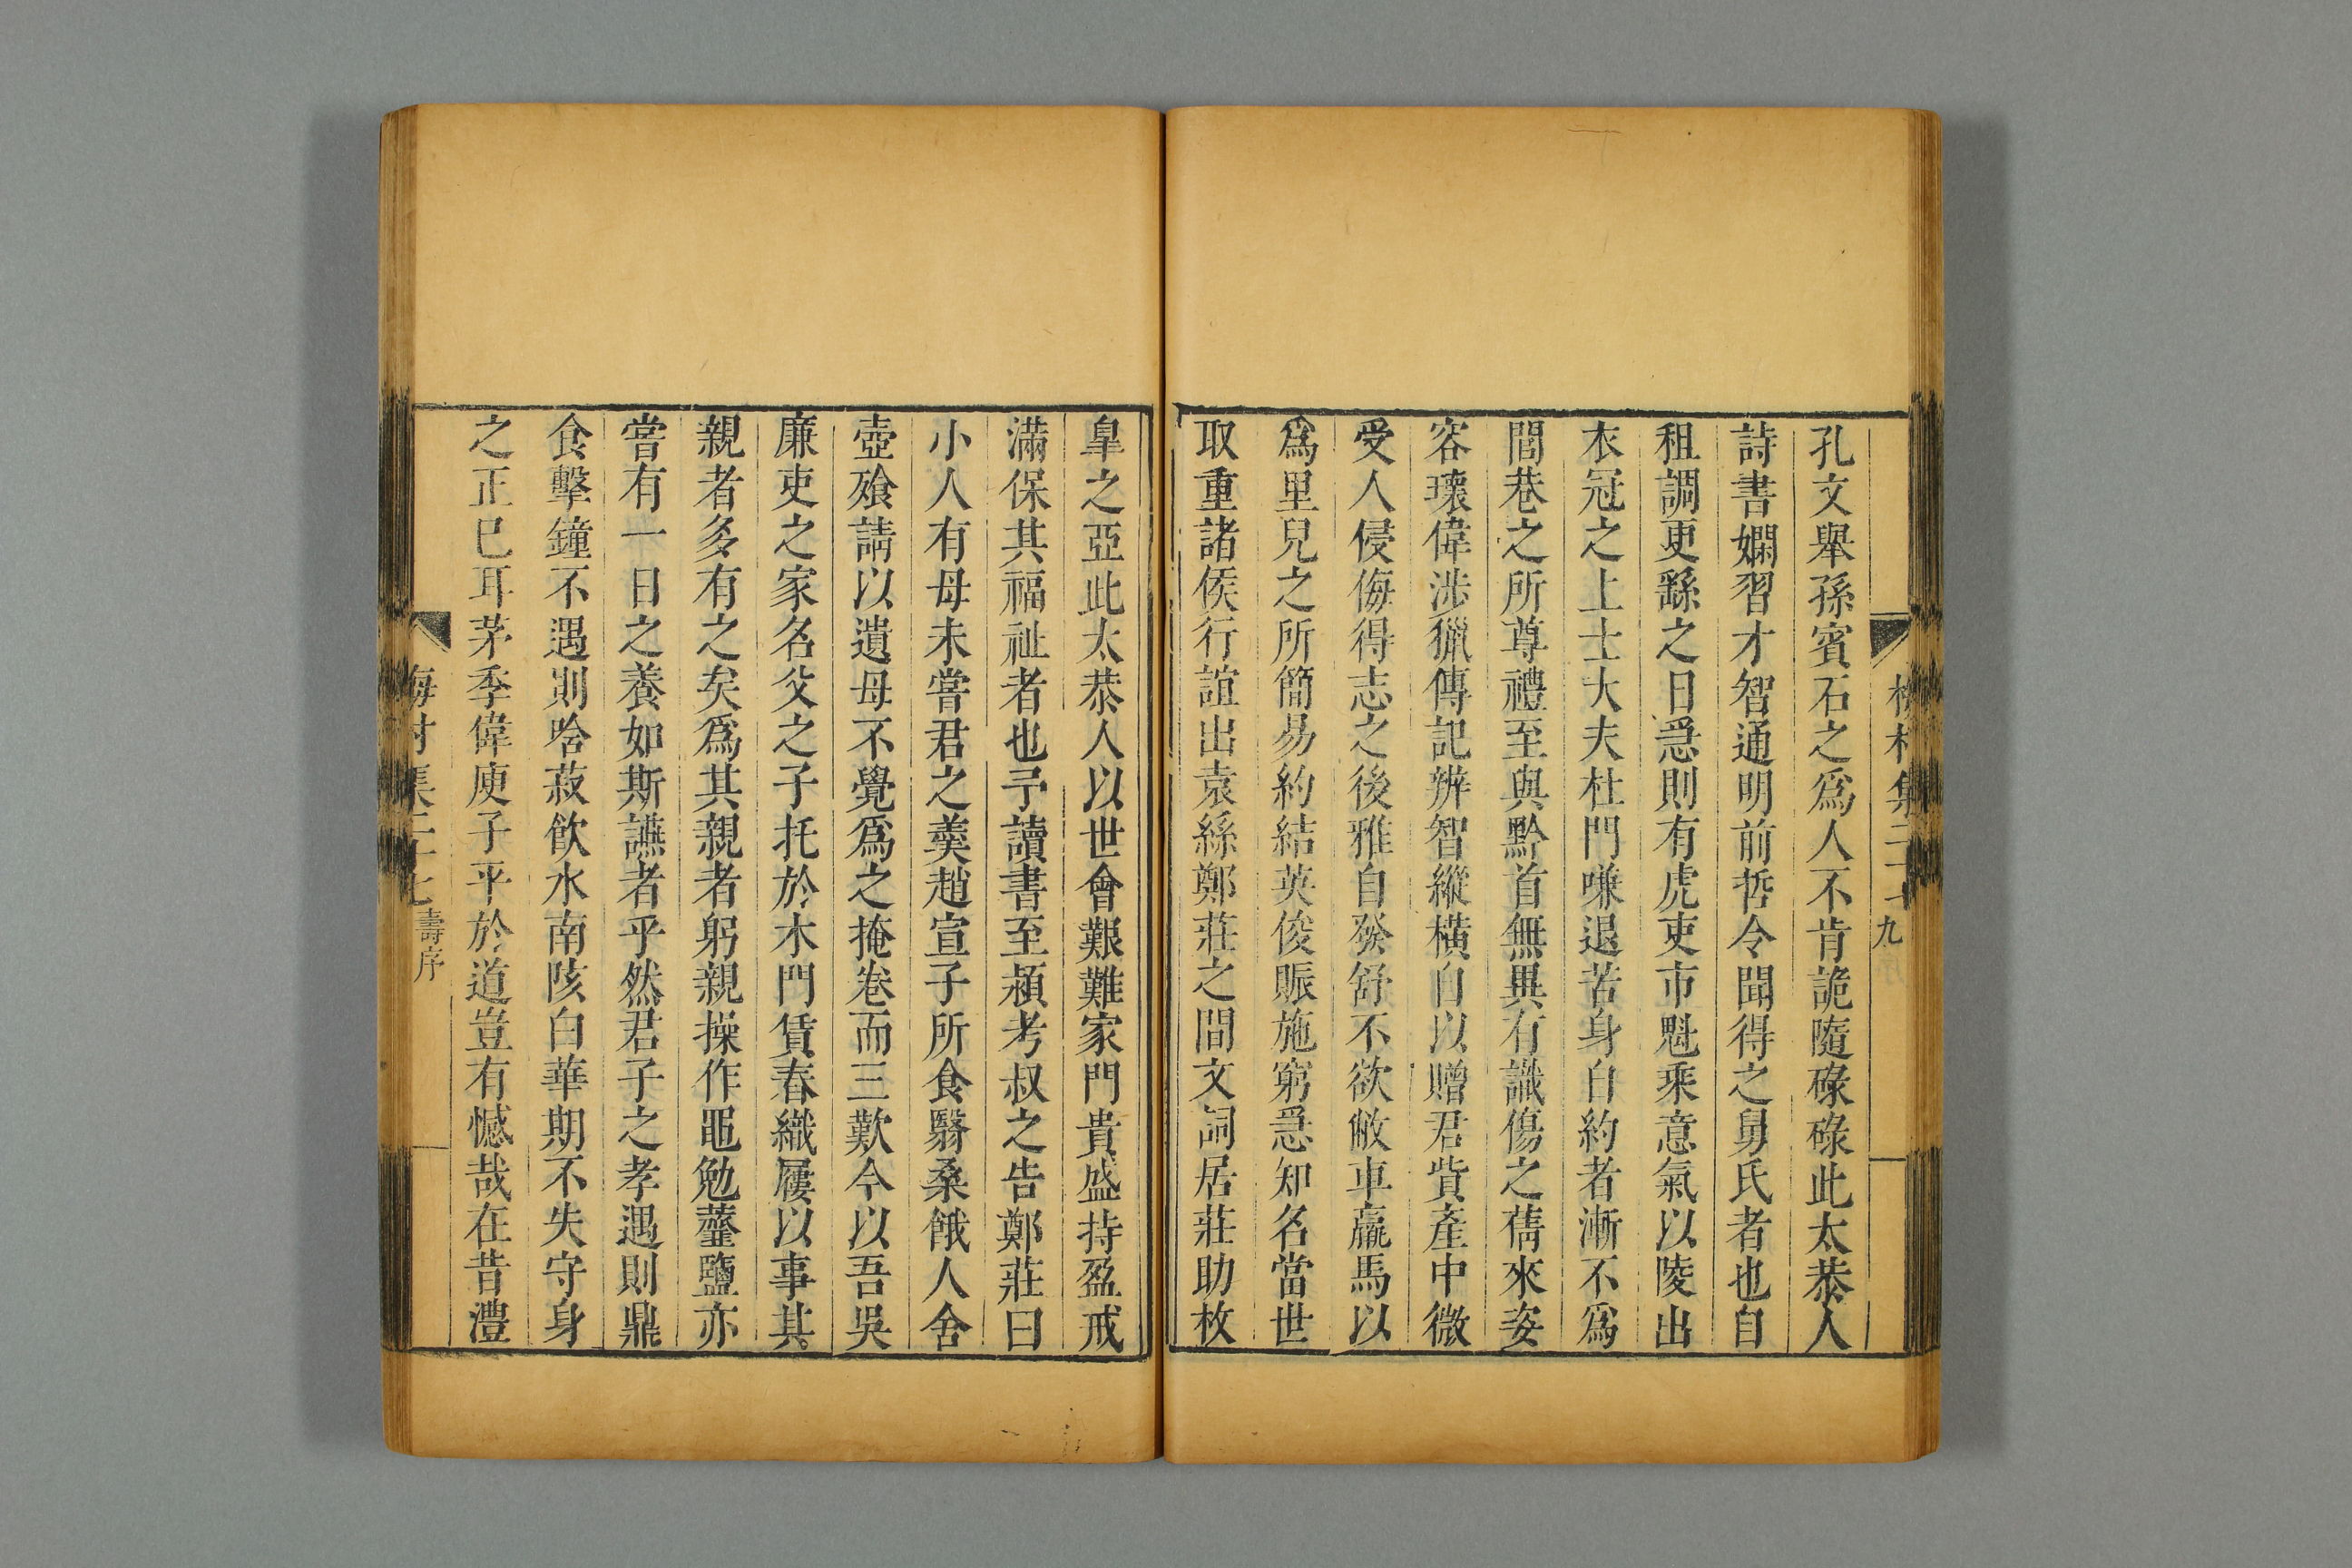 九
孔文舉孫賓石之爲人不肯詭隨碌碌此太恭人
詩書嫻習才智通明前哲令聞得之舅氏者也自
租調更繇之日急則有虎吏市魁乘意氣以陵出
衣冠之上士大夫杜門嗛退苦身自約者漸不爲
閭巷之所尊禮至與黔首無異有識傷之蒨來姿
容瓌偉涉獵傳記辨智縱橫自以贈君貲產中微
受人侵侮得志之後雅自發舒不欲敝車羸馬以
爲里兒之所簡易約結英俊賑施窮急知名當世
取重諸侯行誼出袁絲鄭莊之間文詞居莊助枚
皐之亞此太恭人以世會艱難家門貴盛持盈戒
滿保其福祉者也予讀書至潁考叔之告鄭莊曰
小人有母未嘗君之羮趙宣子所食翳桑餓人舍
壺飱請以遺母不覺爲之掩卷而三歎今以吾吳
廉吏之家名父之子托於木門賃舂織屨以事其
親者多有之矣爲其親者躬親操作黽勉虀鹽亦
嘗有一日之養如斯讌者乎然君子之孝遇則鼎
食擊鐘不遇則啥菽飮水南陔白華期不失守身
之正已耳茅季偉庾子平於道豈有憾哉在昔澧
壽序